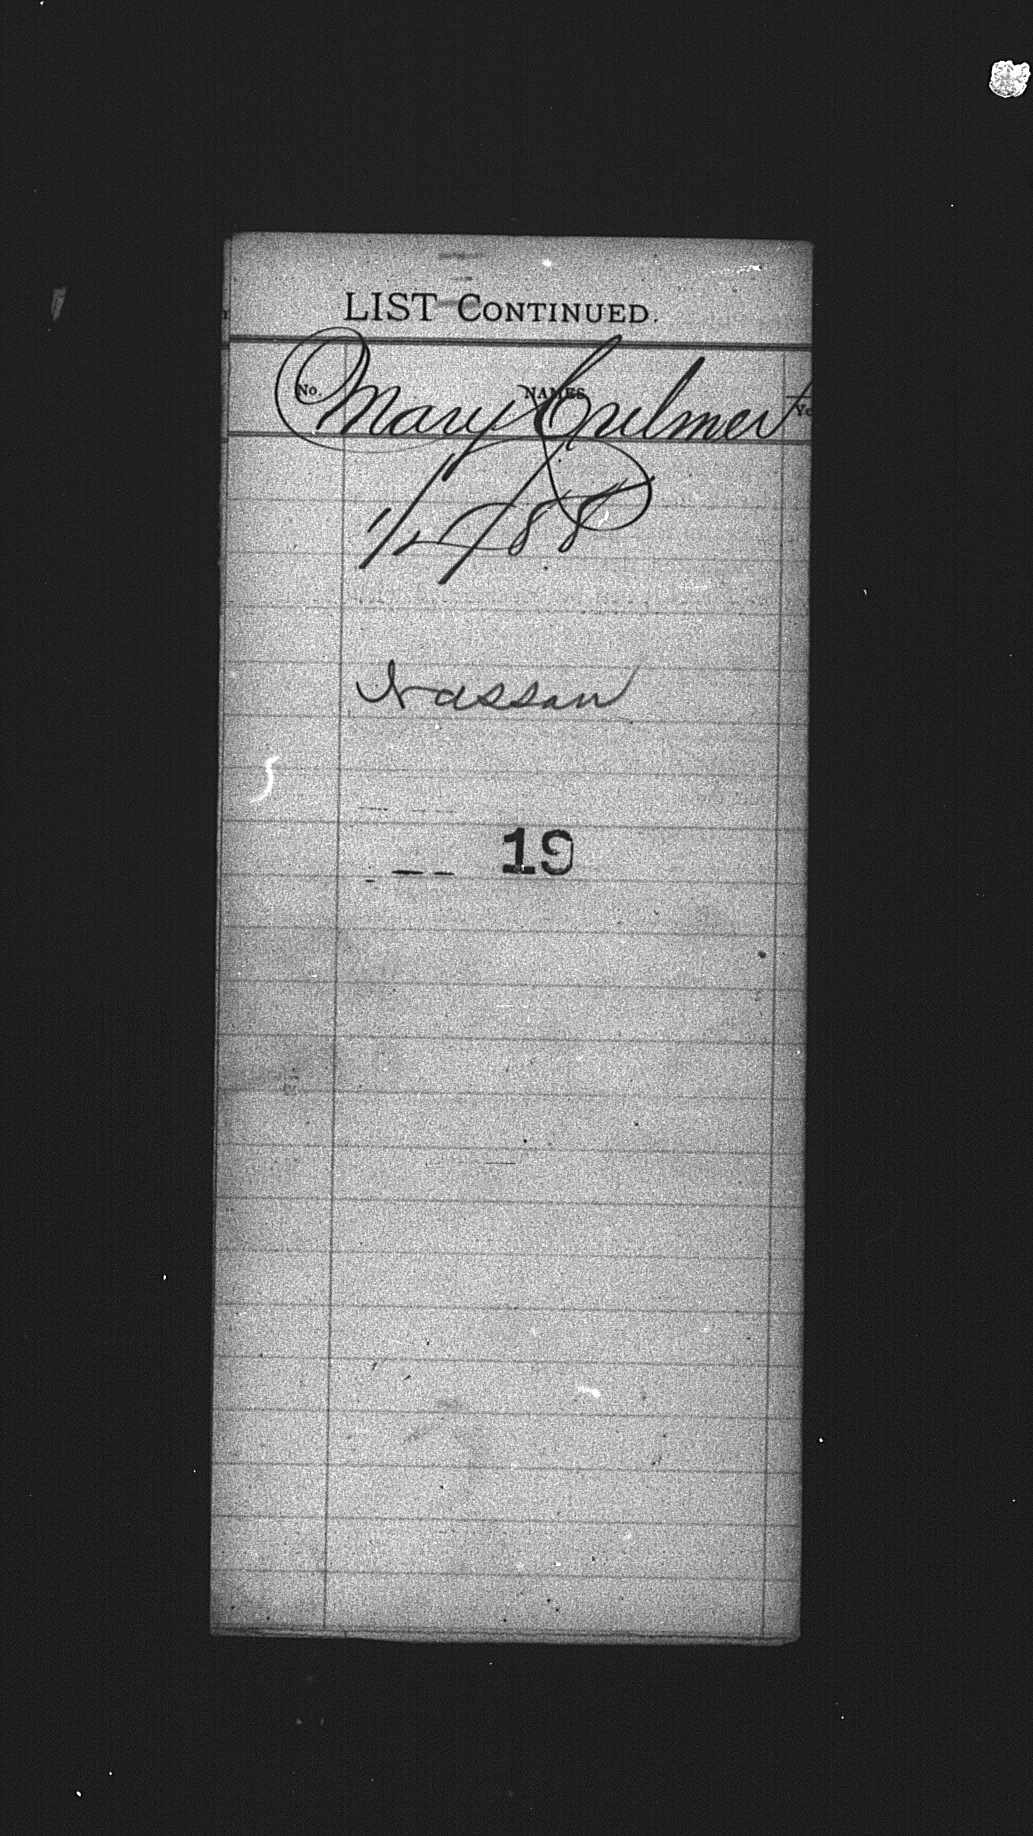 LIST CONTINUED.
No. NAMES
Mary Culmer
1/2/88
Nassau
19